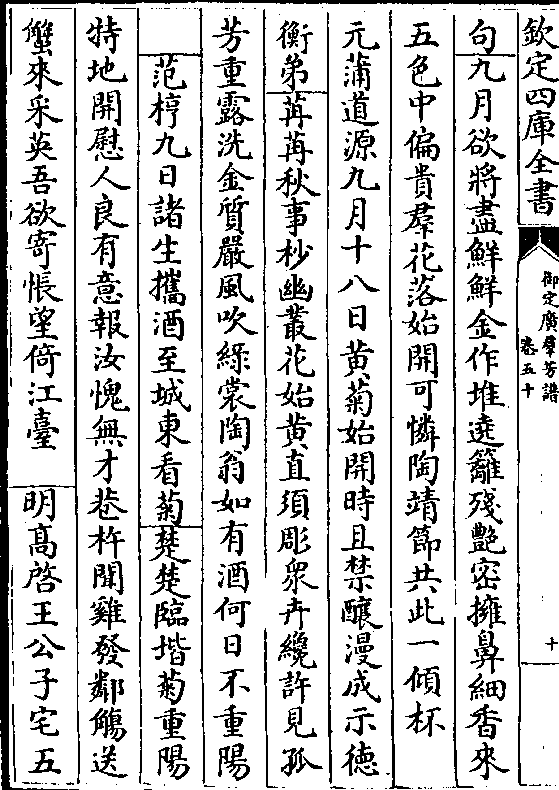 欽定四庫全書
御定廣羣芳譜
卷五十
十
句九月欲將盡鮮鮮金作堆遶籬殘艷密擁鼻細香來
五色中偏貴羣花落始開可憐陶靖節共此一傾杯
元蒲道源九月十八日黄菊始開時且禁釀漫成示徳
衡弟苒苒秋事杪幽叢花始黄直須彫衆卉纔許見孤
芳重露洗金質嚴風吹綠裳陶翁如有酒何日不重陽
范梈九日諸生攜酒至城東看菊楚楚臨堦菊重陽
特地開慰人良有意報汝愧無才巷杵聞雞發鄰觴送
蟹來采英吾欲寄悵望倚江臺
明髙啓王公子宅五